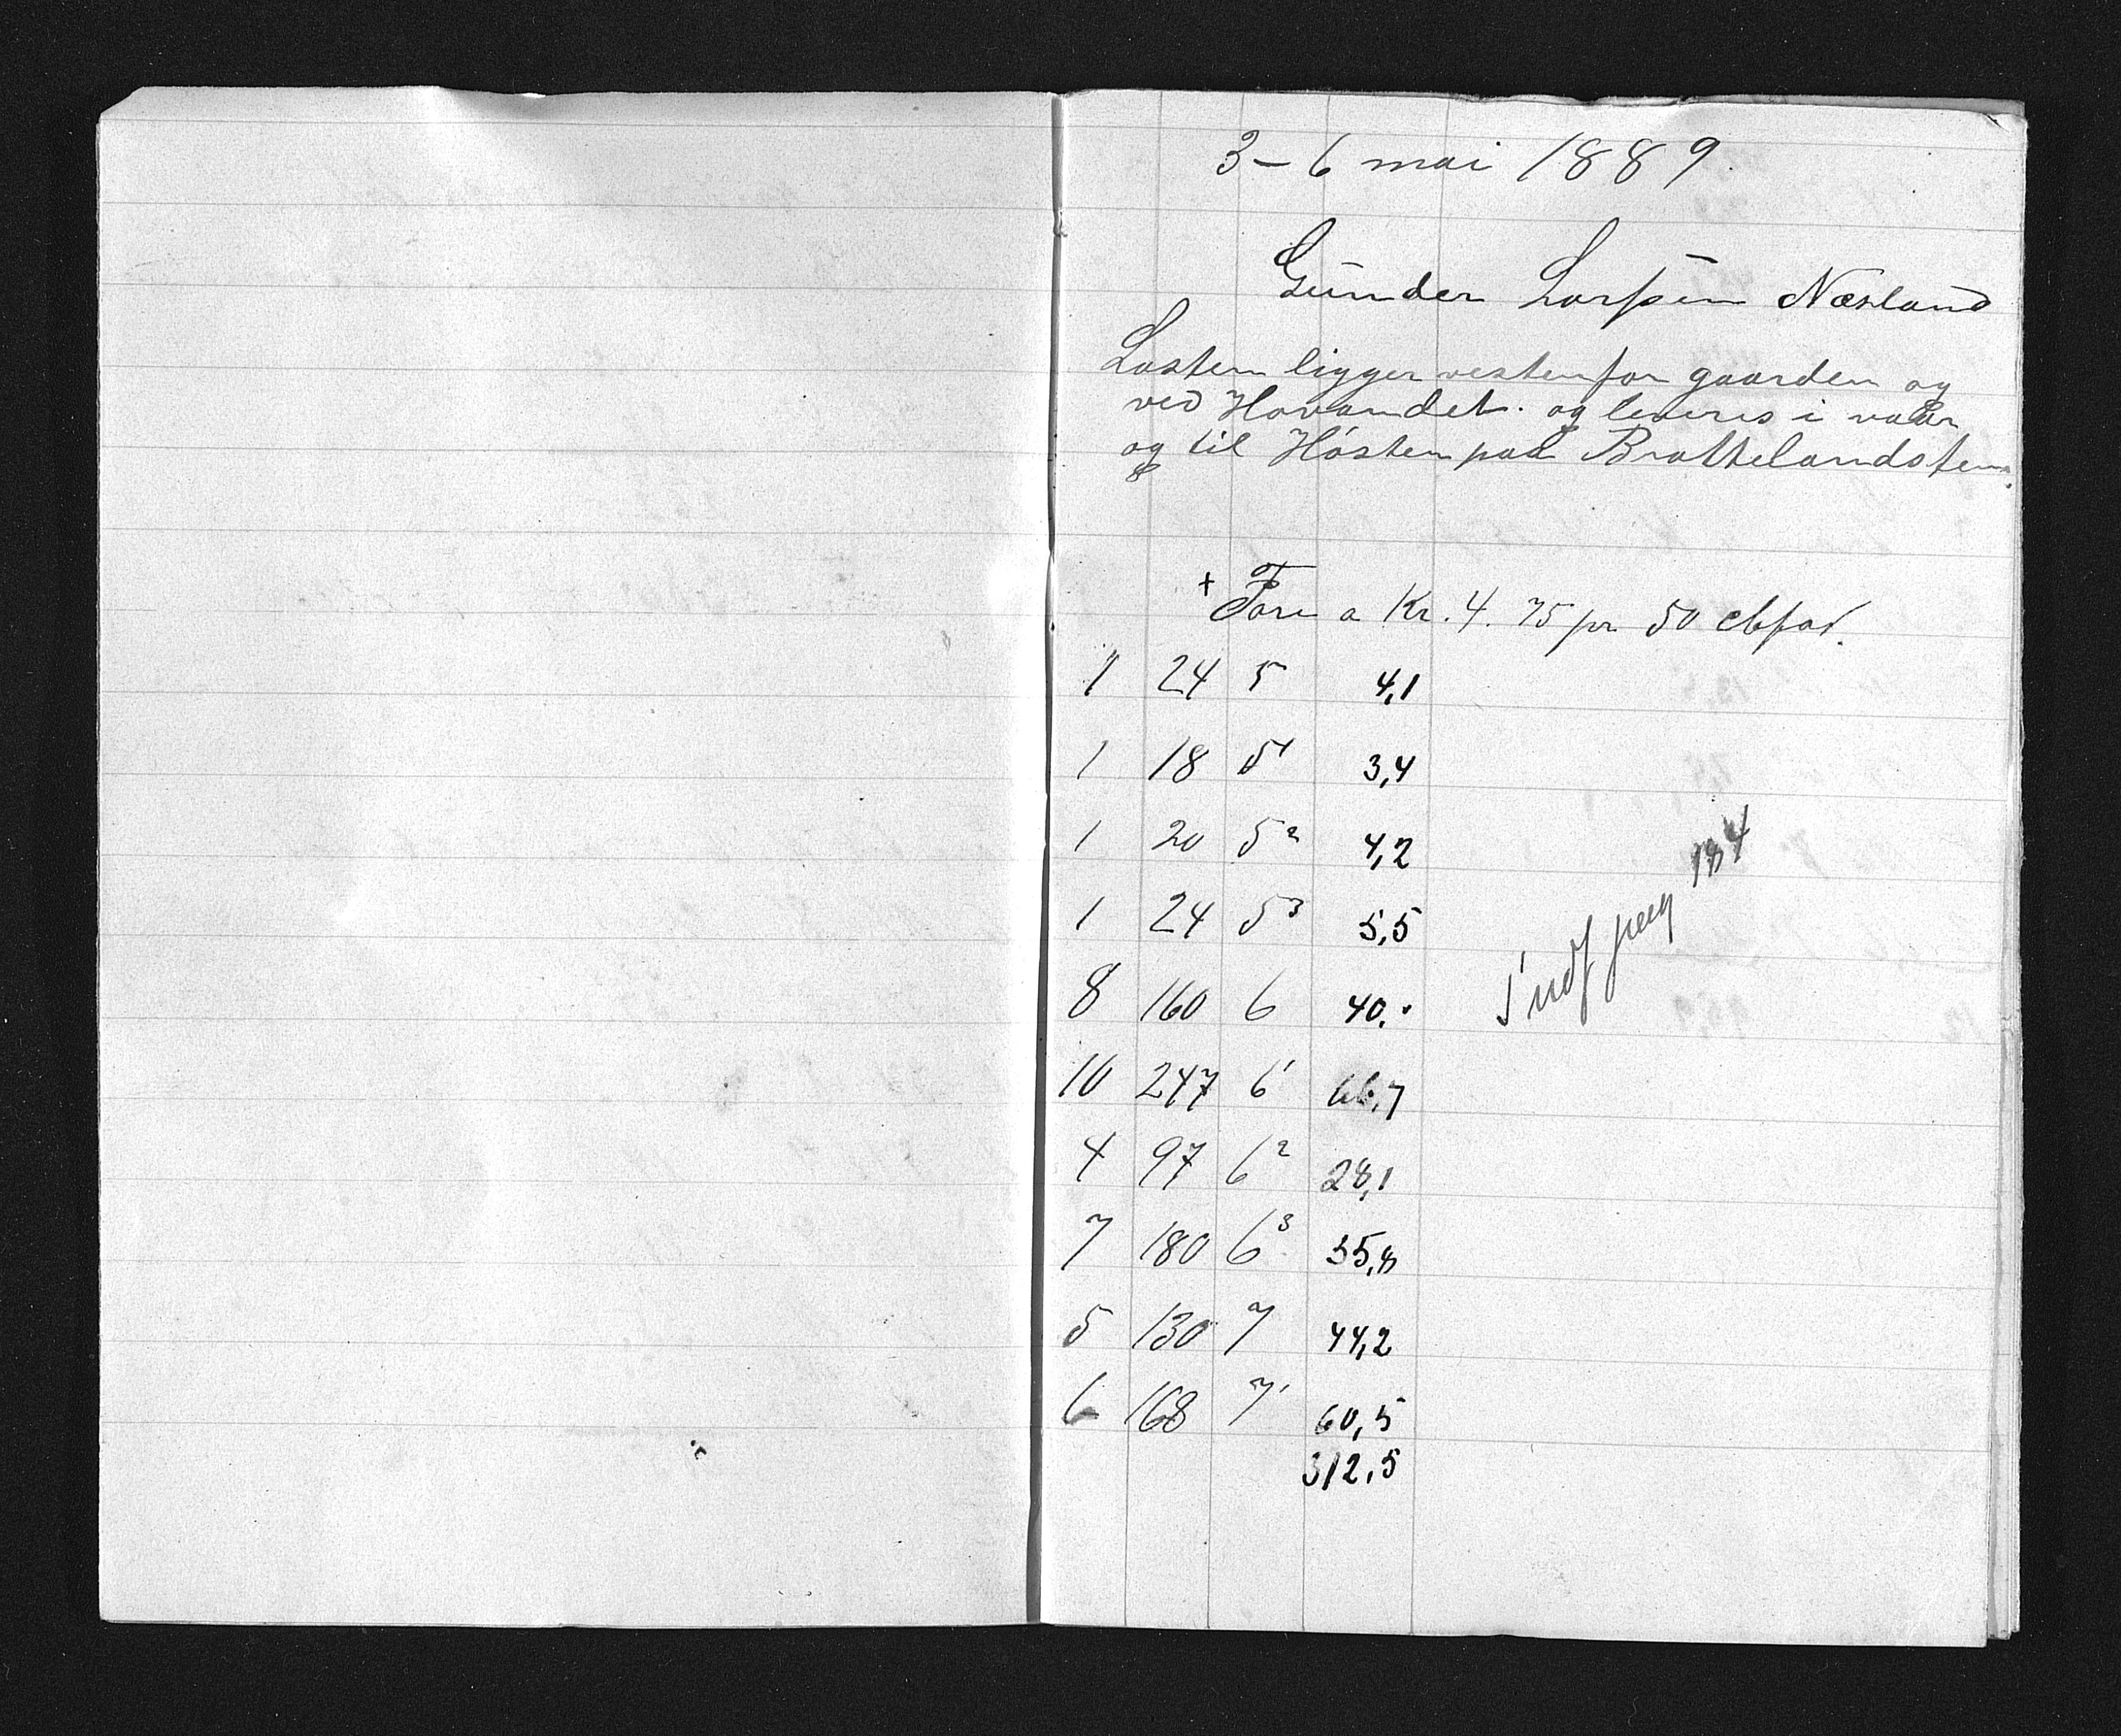 3–6 mai 1889
Gunder Larsen Næsland
Lasten ligger vestenfor gaarden og
ved Hovandet. og leveres i vaar
og til Høsten paa Brattelandsten.
+ Furu a Kr. 4. 75 pr 50 cbfod.
1 24 5 4,1
1 18 5¹ 3,4
1 20 5² 4,2
1 24 5³ 5,5
8 160 6 40,"
10 247 6¹ 66,7
4 97 6² 28,1
7 180 6³ 55,8
5 130 7 44,2
6 168 7¹ 60,5
312,5
184